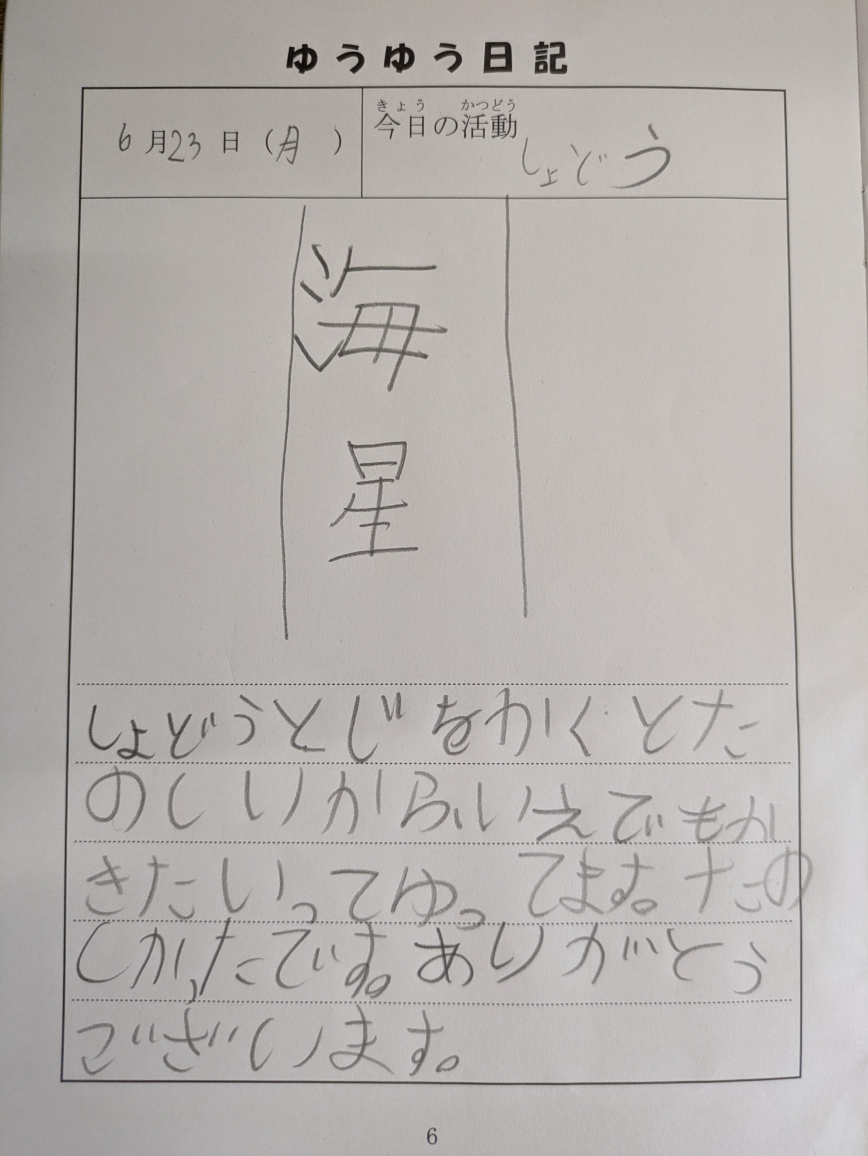 ゆうゆう日記
6月23日（月）
きょう かつどう
今日の活動
しょどう
海
星
しょどうとじをかくとた
のしいから、いえでもか
きたいってゆってます。たの
しかったです。ありがとう
ございます。
6